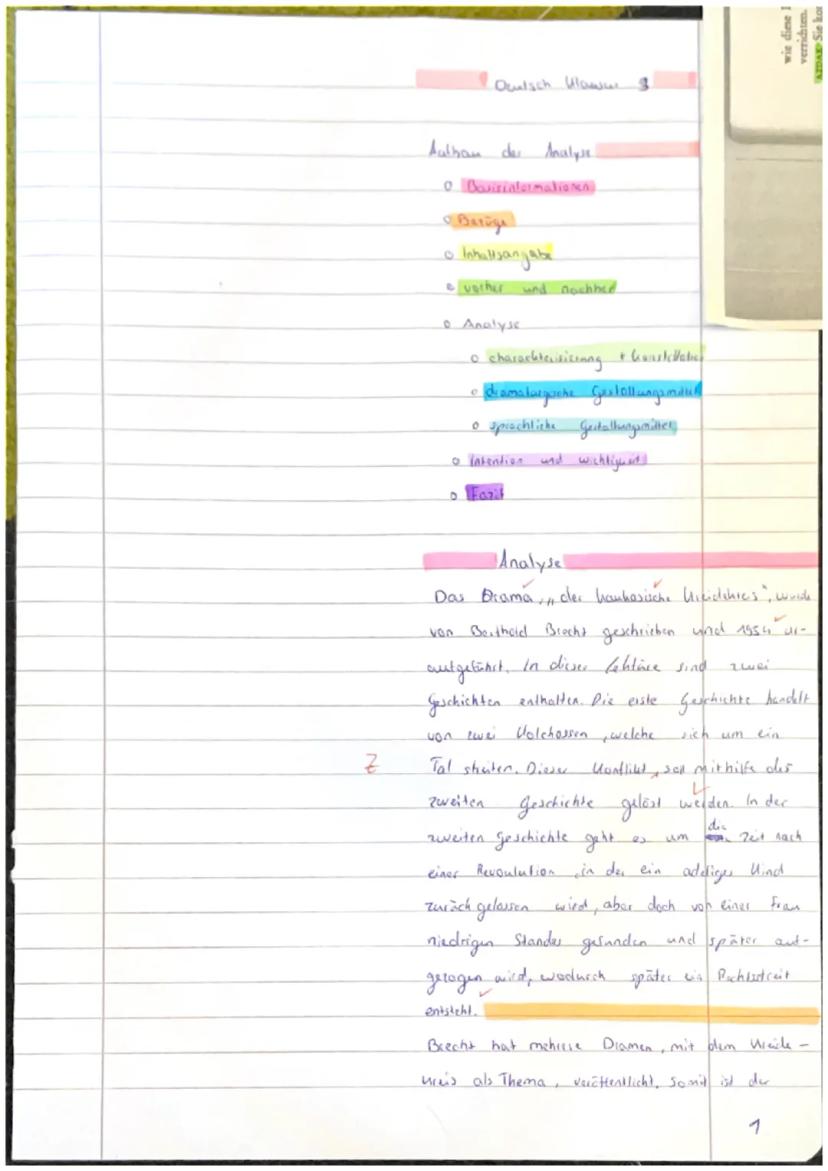 wie diese
verrichten.
AZDAK Sie
Deutsch Klausur 3
Aufbau der Analyse
Basisinformationen
Bezüge
Inhaltsangabe
vorher und nachher
Analyse
charackterisierung + Konstellation
dramaturgische Gestaltungsmittel
sprachliche Gestaltungsmittel
Intention und wichtigkeit
Fazit
Analyse
Das Drama, „der kaukasische Kreidekreis", wurde
von Berthold Brecht geschrieben und 1954 ur-
aufgeführt. In dieser Lektüre sind zwei
Geschichten enthalten. Die erste Geschichte handelt
von zwei Kolchosen, welche sich um ein
Z Tal streiten. Dieser Konflikt, soll mithilfe der
zweiten Geschichte gelöst werden. In der
zweiten Geschichte geht es um die Zeit nach
einer Revoulution, in der ein adeliges Kind
zurück gelassen wird, aber doch von einer Frau
niedrigen Standes gefunden und später auf-
gezogen wird, wodurch später ein Rechtsstreit
entsteht.
Brecht hat mehrere Dramen, mit dem Kreide-
kreis als Thema, veröffentlicht. Somit ist der
1